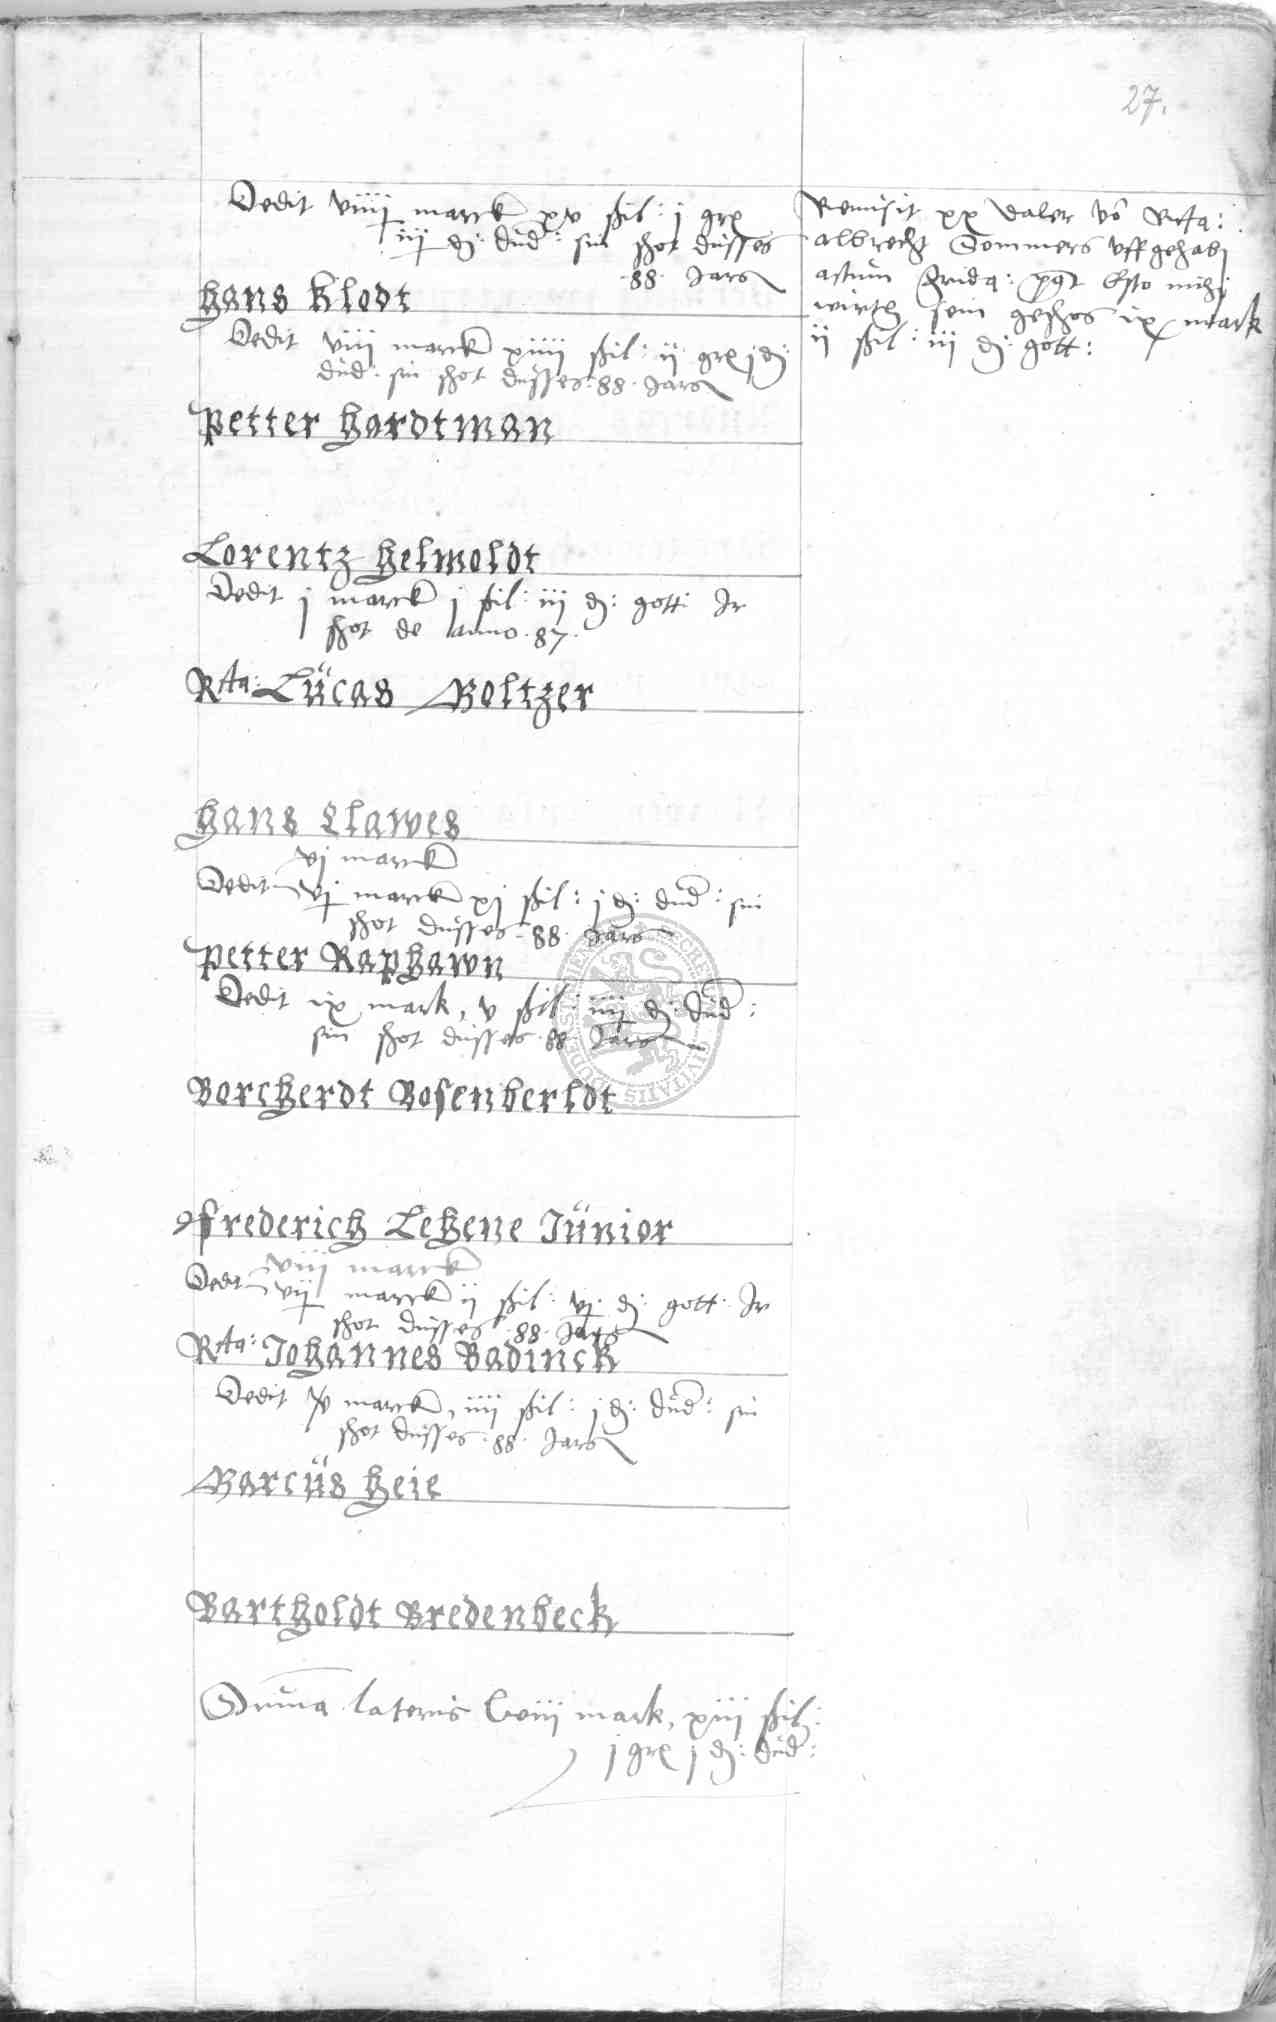 27.
Dedit viiij marck xv ßil: j grx
iij d: dud: sin schot dusses
88. Jars
Hans Klodt
Remisit xx daler vō Rcta:
albrecht Sommers vffgehabt
actum Frida: post Esto mihi
wirth sein geschos ix mark
ij ßil: iij d: gott:
Dedit viij marck xiiij ßil: ij grx j d:
dud: sin schot dusses: 88. Jars
Petter Hardtman
Lorentz Helmoldt
Dedit j marck j ßil: iij d: gott: Ir
schot de anno. 87.
Rcta: Lücas Boltzer
Hans Clawes
vj marck
Dedit vj marck xj ßil: j d: dud: sin
schot dusses. 88. Jars
Petter Raphawn
Dedit ix mark, v ßil: iiij d: dud:
sin schot dusses. 88 Jars
Borcherdt Bosenberldt
Frederich Lehene Jünior
viij marck
Dedit vij marck ij ßil: vj d: gott: Ir
schot dusses 88. Jars
Rcta: Johannes Badinck
Dedit xv marck, iiij ßil: j d: dud: sin
schot dusses. 88. Jars
Marcüs Heie
Bartholdt Bredenbeck
Summa lateris lviij mark, xiij ßil:
j grx j d: dud: